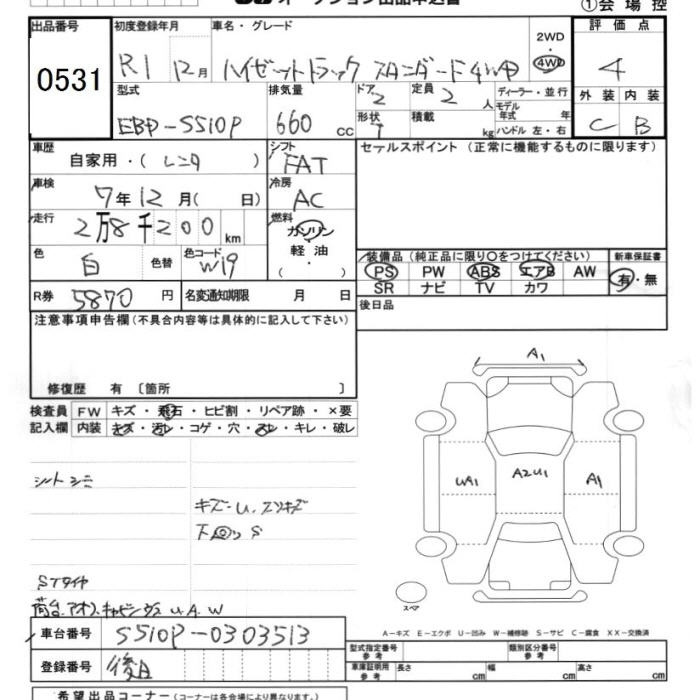 オークション出品申込書
①会場控
出品番号 初度登録年月 車名・グレード 2WD・4WD 評価点
0531 R1 12月 ハイゼットトラック スタンダード4WD 4
型式 排気量 ドア 定員 ディーラー・並行 外装 内装
EBD-S510P 660 CC 2 2 人 モデル年式 年 C B
形状 積載 kg ハンドル 左・右
車歴 シフト セールスポイント (正常に機能するものに限ります)
自家用・( レンタ ) FAT
車検 冷房
7年12月( 日) AC
走行 燃料
2万8千200km ガソリン・軽油・( )
色 色替 色コード 装備品(純正品に限り○をつけてください) 新車保証書
白 W19 PS PW ABS エアB AW 有・無
SR ナビ TV カワ
R券 5870円 名変通知期限 月 日 後日品
注意事項申告欄(不具合内容等は具体的に記入して下さい)
修復歴 有 〔箇所 〕
A1
検査員 FW キズ・飛石・ヒビ割・リペア跡・×要
記入欄 内装 キズ・汚レ・コゲ・穴・スレ・キレ・破レ
UA1 A2U1 A1
シートシミ
キズ・U、スリキズ
下回りS
STタイヤ
スペア
A-キズ E-エクボ U-凹み W-補修跡 S-サビ C-腐食 XX-交換済
車台番号 S510P-0303513
型式指定番号 参考 類別区分番号 参考
登録番号 後日
車庫証明用 参考 長さ cm 幅 cm 高さ cm
希望出品コーナー(コーナーは各会場により異なります。)